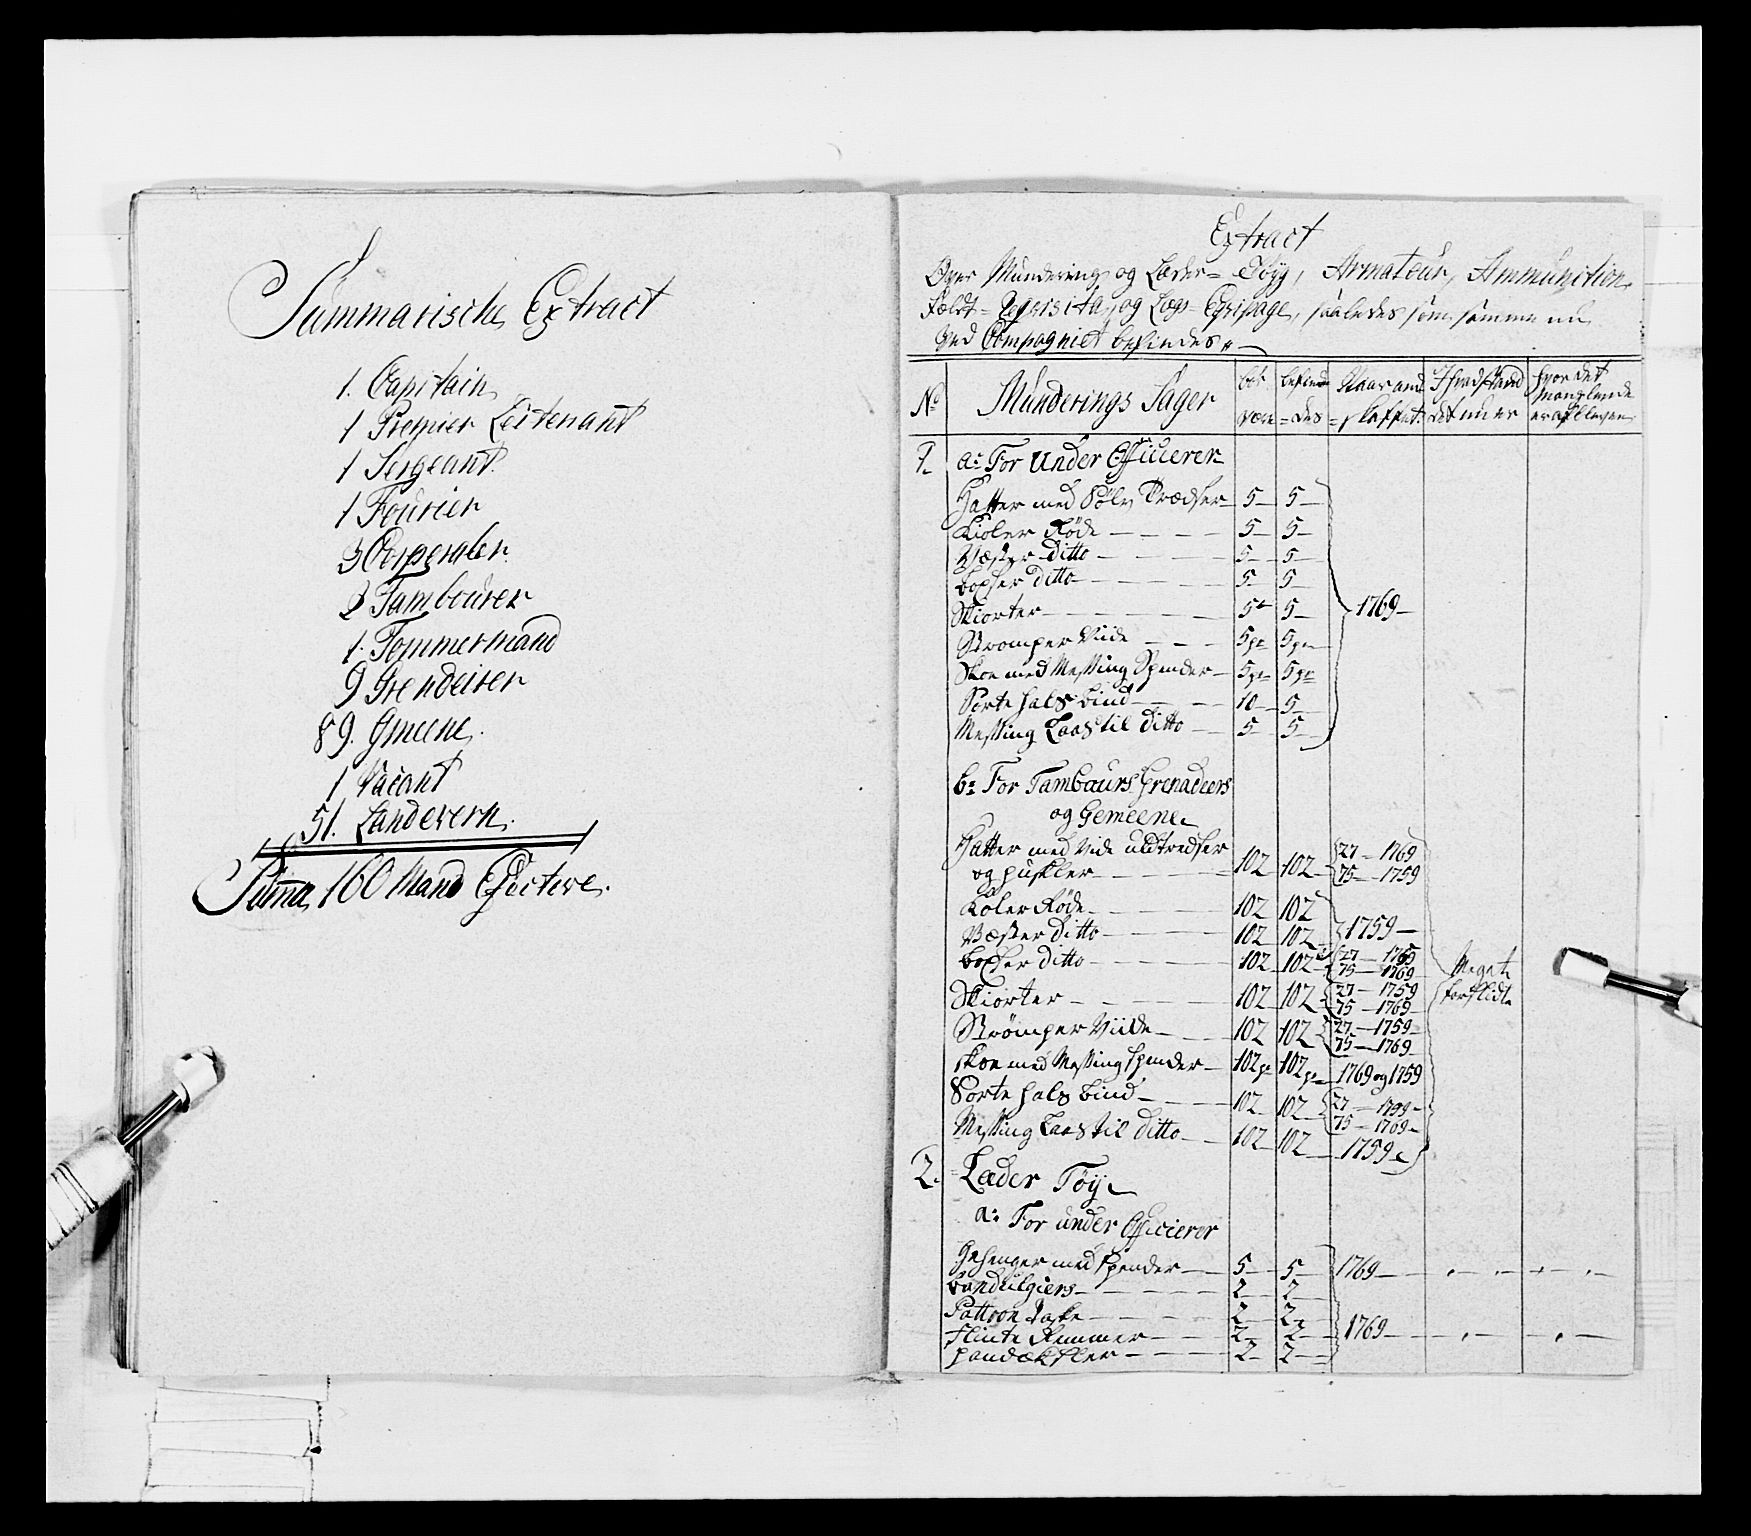 Summarische Extract
1. Capitain
1 Premier Leitenant
1 Sergeant
1 Fourier
3 Corperaler
2 Tambourer
1. Tømmermand
9 Grendeirer
89. Gmeene.
1 Vacant
51. Landevern.
Summa 160 Mand Efective.
Extract
Over Mundering og Læder= Tøyg, Armatour, Ammunition
Feldt= Reqvisita, og Legr= Eqvipage, saaledes som samme nu
ved Compagniet befindes
No Munderings Sager bør være befindes Naar anskaffet I hvad stand det nu er hvor det Manglende er afbleven
1. a: For Under Officierer
Hatter med Sølv Trædser 5 5
Kioler Røde 5 5
Væster ditto 5 5
boxser ditto 5 5
Skiorter 5 5 1769
Strømper Viide 5 pr 5 pr
Skoe med Messing Spender 5 pr 5 pr
Sorte hals bind 10 5
Messing Laas til ditto 5 5
b: For Tambours Grenadeers
og Gemeene
Hatter med Vide uldtredser 27 1769
og puskler 102 102 75 1759
Kioler Røde 102 102
Væster ditto 102 102 1759
boxser ditto 102 102 27 1769 75 1769 Meget
Skiorter 102 102 27 1759 75 1769 forslidt
Strømper Viide 102 102 27 1759 75 1769
Skoe med Messing spender 102 pr 102 pr 1769 og 1759
Sorte hals bind 102 102 27 75 1769
Messing Laas til ditto 102 102 1759
2. Læder Tøy
a: For under Officierer
Gehenger med spender 5 5 1769
bandulgiers 2 2
Pattron Taske 2 2
Flinte Remmer 2 2 1769
handækkler 2 2